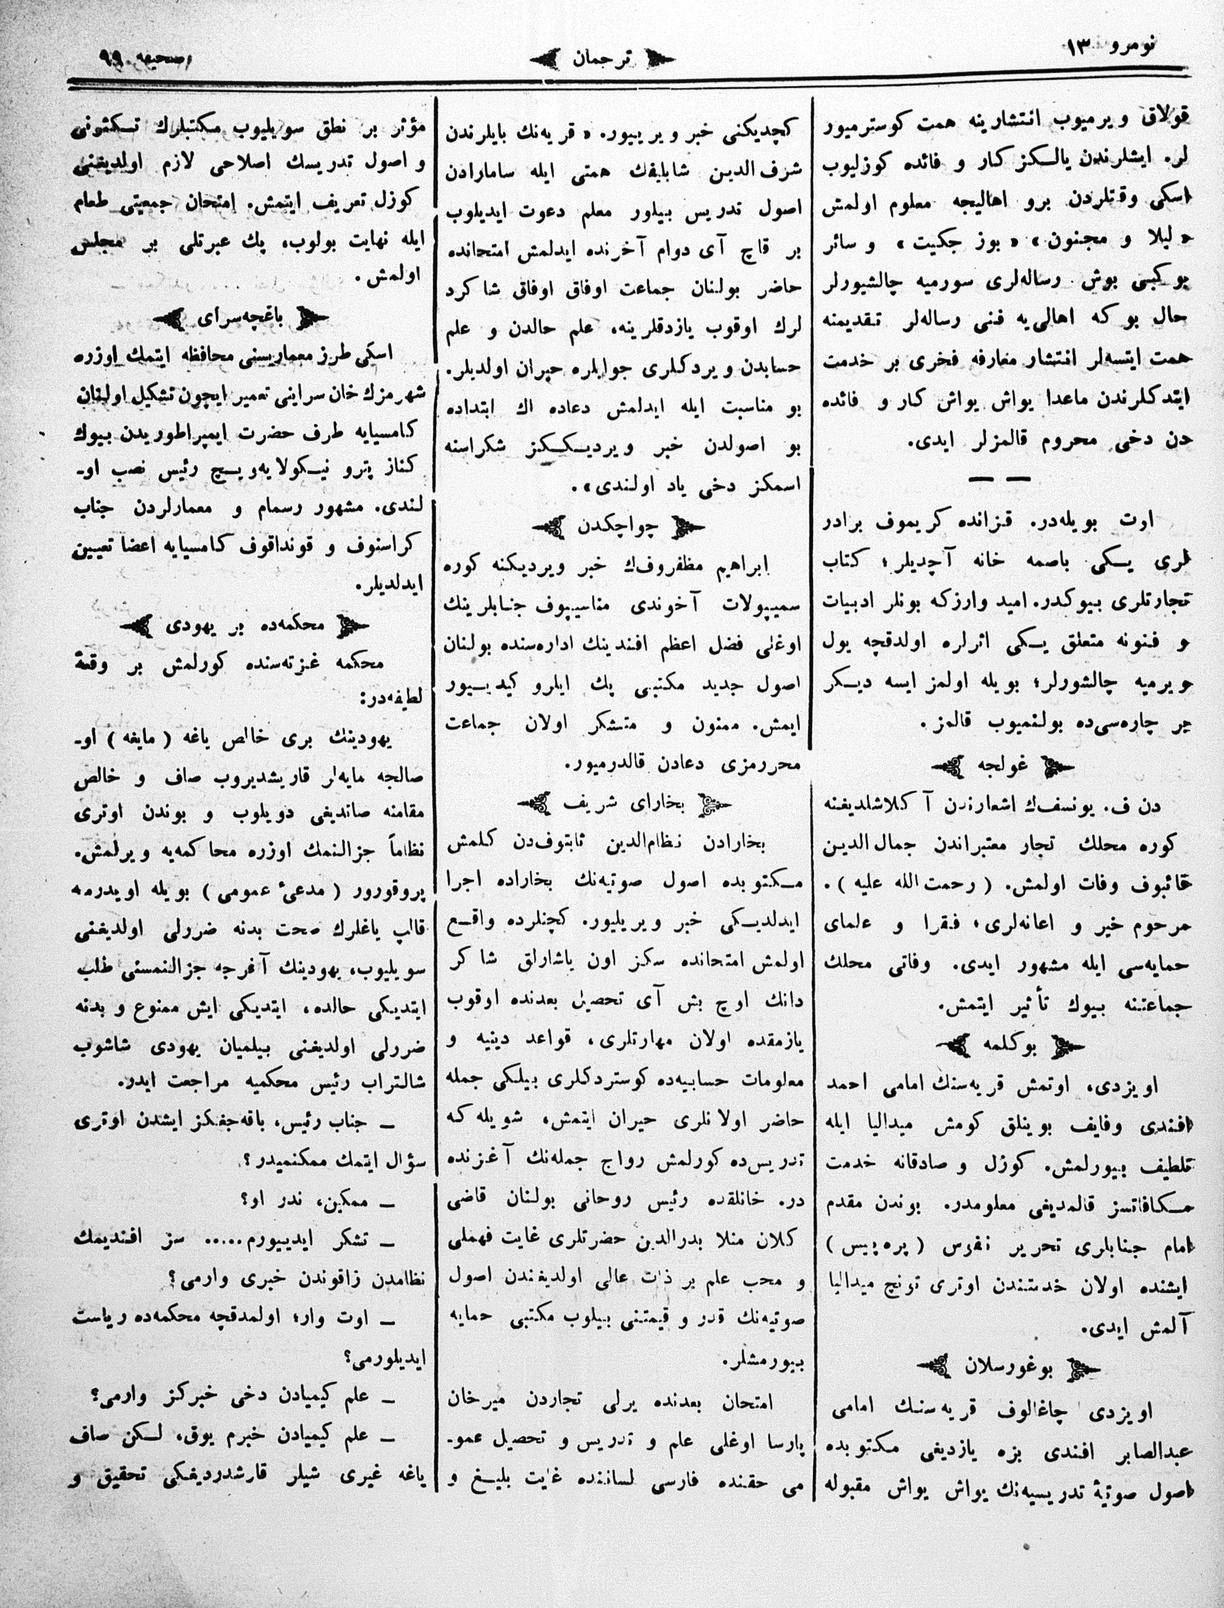 نومرو ١٣
ترجمان
صحيفه ٩٩
قولاق ويرميوب انتشارينه همت كوسترميور
لر. ايشلرندن يالكز كار و فائده كوزليوب
اسكى وقتلردن برو اهاليجه معلوم اولمش
«ليلا و مجنون» «بوز جكيت» و سائر
بو كبى بوش رساله‌لرى سورميه چالشيورلر
حال بو كه اهالى‌يه فنى رساله‌لر تقديمنه
همت ايتسه‌لر انتشار معارفه فخرى بر خدمت
ايتدكلرندن ماعدا يواش يواش كار و فائده
دن دخى محروم قالمزلر ايدى.
ارت بويله‌در. قزانده كريموف برادر
لرى يكى باصمه خانه آچديلر؛ كتاب
تجارتلرى بيوكدر. اميد وارزكه بونلر ادبيات
و فنونه متعلق يكى اثرلره اولدقچه يول
ويرميه چالشورلر؛ بويله اولمز ايسه ديكر
بر چاره‌سى‌ده بولنميوب قالمز.
غولجه
دن ف. يونسفك اشعارندن آكلاشلديغنه
كوره محلك تجار معتبراندن جمال الدين
قائبوف وفات اولمش. (رحمت الله عليه).
مرحوم خير و اعانه‌لرى؛ فقرا و علماى
حمايه‌سى ايله مشهور ايدى. وفاتى محلك
جماعتنه بيوك تأثير ايتمش.
بوكلمه
اويزدى، اوتمش قريه‌سنك امامى احمد
افندى وفايف بوينلق كومش ميداليا ايله
تلطيف بيورلمش. كوزل و صادقانه خدمت
مكافاتسز قالمديغى معلومدر. بوندن مقدم
امام جنابلرى تحرير نفوس (پره‌پيس)
ايشنده اولان خدمتندن اوترى تونچ ميداليا
آلمش ايدى.
بوغورسلان
اويزدى چاغالوف قريه‌سنك امامى
عبدالصابر افندى بزه يازديغى مكتوبده
اصول صوتيهٔ تدريسيه‌نك يواش يواش مقبوله
كچديكنى خبر ويرييور. «قريه‌نك بايلرندن
شرف الدين شابايقك همتى ايله سامارادن
اصول تدريس بيلور معلم دعوت ايديلوب
بر قاچ آى دوام آخرنده ايدلمش امتحانده
حاضر بولنان جماعت اوفاق اوفاق شاكرد
لرك اوقوب يازدقلرينه، علم حالدن و علم
حسابدن ويردكلرى جوابلره حيران اولديلر.
بو مناسبت ايله ايدلمش دعاده اك ابتداده
بو اصولدن خبر ويرديككز شكراسنه
اسمكز دخى ياد اولندى».
چواچكدن
ابراهيم مظفروفك خبر ويرديكنه كوره
سميپولات آخوندى مناسيپوف جنابلرينك
اوغلى فضل اعظم افندينك اداره‌سنده بولنان
اصول جديد مكتبى پك ايلرو كيدييور
ايمش. ممنون و متشكر اولان جماعت
محررمزى دعادن قالدرميور.
بخاراى شريف
بخارادن نظام‌الدين ثابتوف‌دن كلمش
مكتوبده اصول صوتيه‌نك بخاراده اجرا
ايدلديكى خبر ويريليور. كچنلرده واقع
اولمش امتحانده سكز اون ياشارلق شاكر
دانك اوچ بش آى تحصيل بعدنده اوقوب
يازمقده اولان مهارتلرى، قواعد دينيه و
معلومات حسابيه‌ده كوستردكلرى بيلكى جمله
حاضر اولانلرى حيران ايتمش، شويله كه
تدريس‌ده كورلمش رواج جمله‌نك آغزنده
در. خانلقده رئيس روحانى بولنان قاضى
كلان منلا بدرالدين حضرتلرى غايت فهملى
و محب علم بر ذات عالى اولديغندن اصول
صوتيه‌نك قدر و قيمتنى بيلوب مكتبى حمايه
بيورمشلر.
امتحان بعدنده يرلى تجاردن ميرخان
پارسا اوغلى علم و تدريس و تحصيل عمو-
مى حقنده فارسى لساننده غايت بليغ و
مؤثر بر نطق سويليوب مكتبلرك تكثونى
و اصول تدريسك اصلاحى لازم اولديغنى
كوزل تعريف ايتمش. امتحان جمعيتى طعام
ايله نهايت بولوب، پك عبرتلى بر مجلس
اولمش.
باغچه‌سراى
اسكى طرز معماريسنى محافظه ايتمك اوزره
شهرمزك خان سراينى تعمير ايچون تشكيل اولنان
كامسيايه طرف حضرت ايمپراطوريدن بيوك
كناز پترو نيكولايه‌ويچ رئيس نصب او-
لندى. مشهور رسمام و معمارلردن جناب
كراسنوف و قونداقوف كامسيايه اعضا تعيين
ايدلديلر.
محكمه‌ده بر يهودى
محكمه غزته‌سنده كورلمش بر وقعهٔ
لطيفه‌در:
يهودينك برى خالص ياغه (مايغه) او-
صالجه مايه‌لر قاريشديروب صاف و خالص
مقامنه صانديغى دويلوب و بوندن اوترى
نظاماً جزالنمك اوزره محاكمه‌يه ويرلمش.
پروقورور (مدعئ عمومى) بويله اويدرمه
قالپ ياغلرك صحت بدنه ضررلى اولديغنى
سويليوب، يهودينك آفرجه جزالنمسنى طلب
ايتديكى حالده، ايتديكى ايش ممنوع و بدنه
ضررلى اولديغنى بيلميان يهودى شاشوب
شالتراب رئيس محكميه مراجعت ايدر.
ـ جناب رئيس، باقه‌جغكز ايشدن اوترى
سؤال ايتمك ممكنميدر؟.
ـ ممكن، ندر او؟
ـ تشكر ايدييورم..... سز افنديمك
نظامدن زاقوندن خبرى وارمى؟
ـ اوت وار؛ اولمدقچه محكمه‌ده رياست
ايديلورمى؟
ـ علم كيميادن دخى خبركز وارمى؟
ـ علم كيميادن خبرم يوق، لكن صاف
ياغه غيرى شيلر قارشدرديغكى تحقيق و